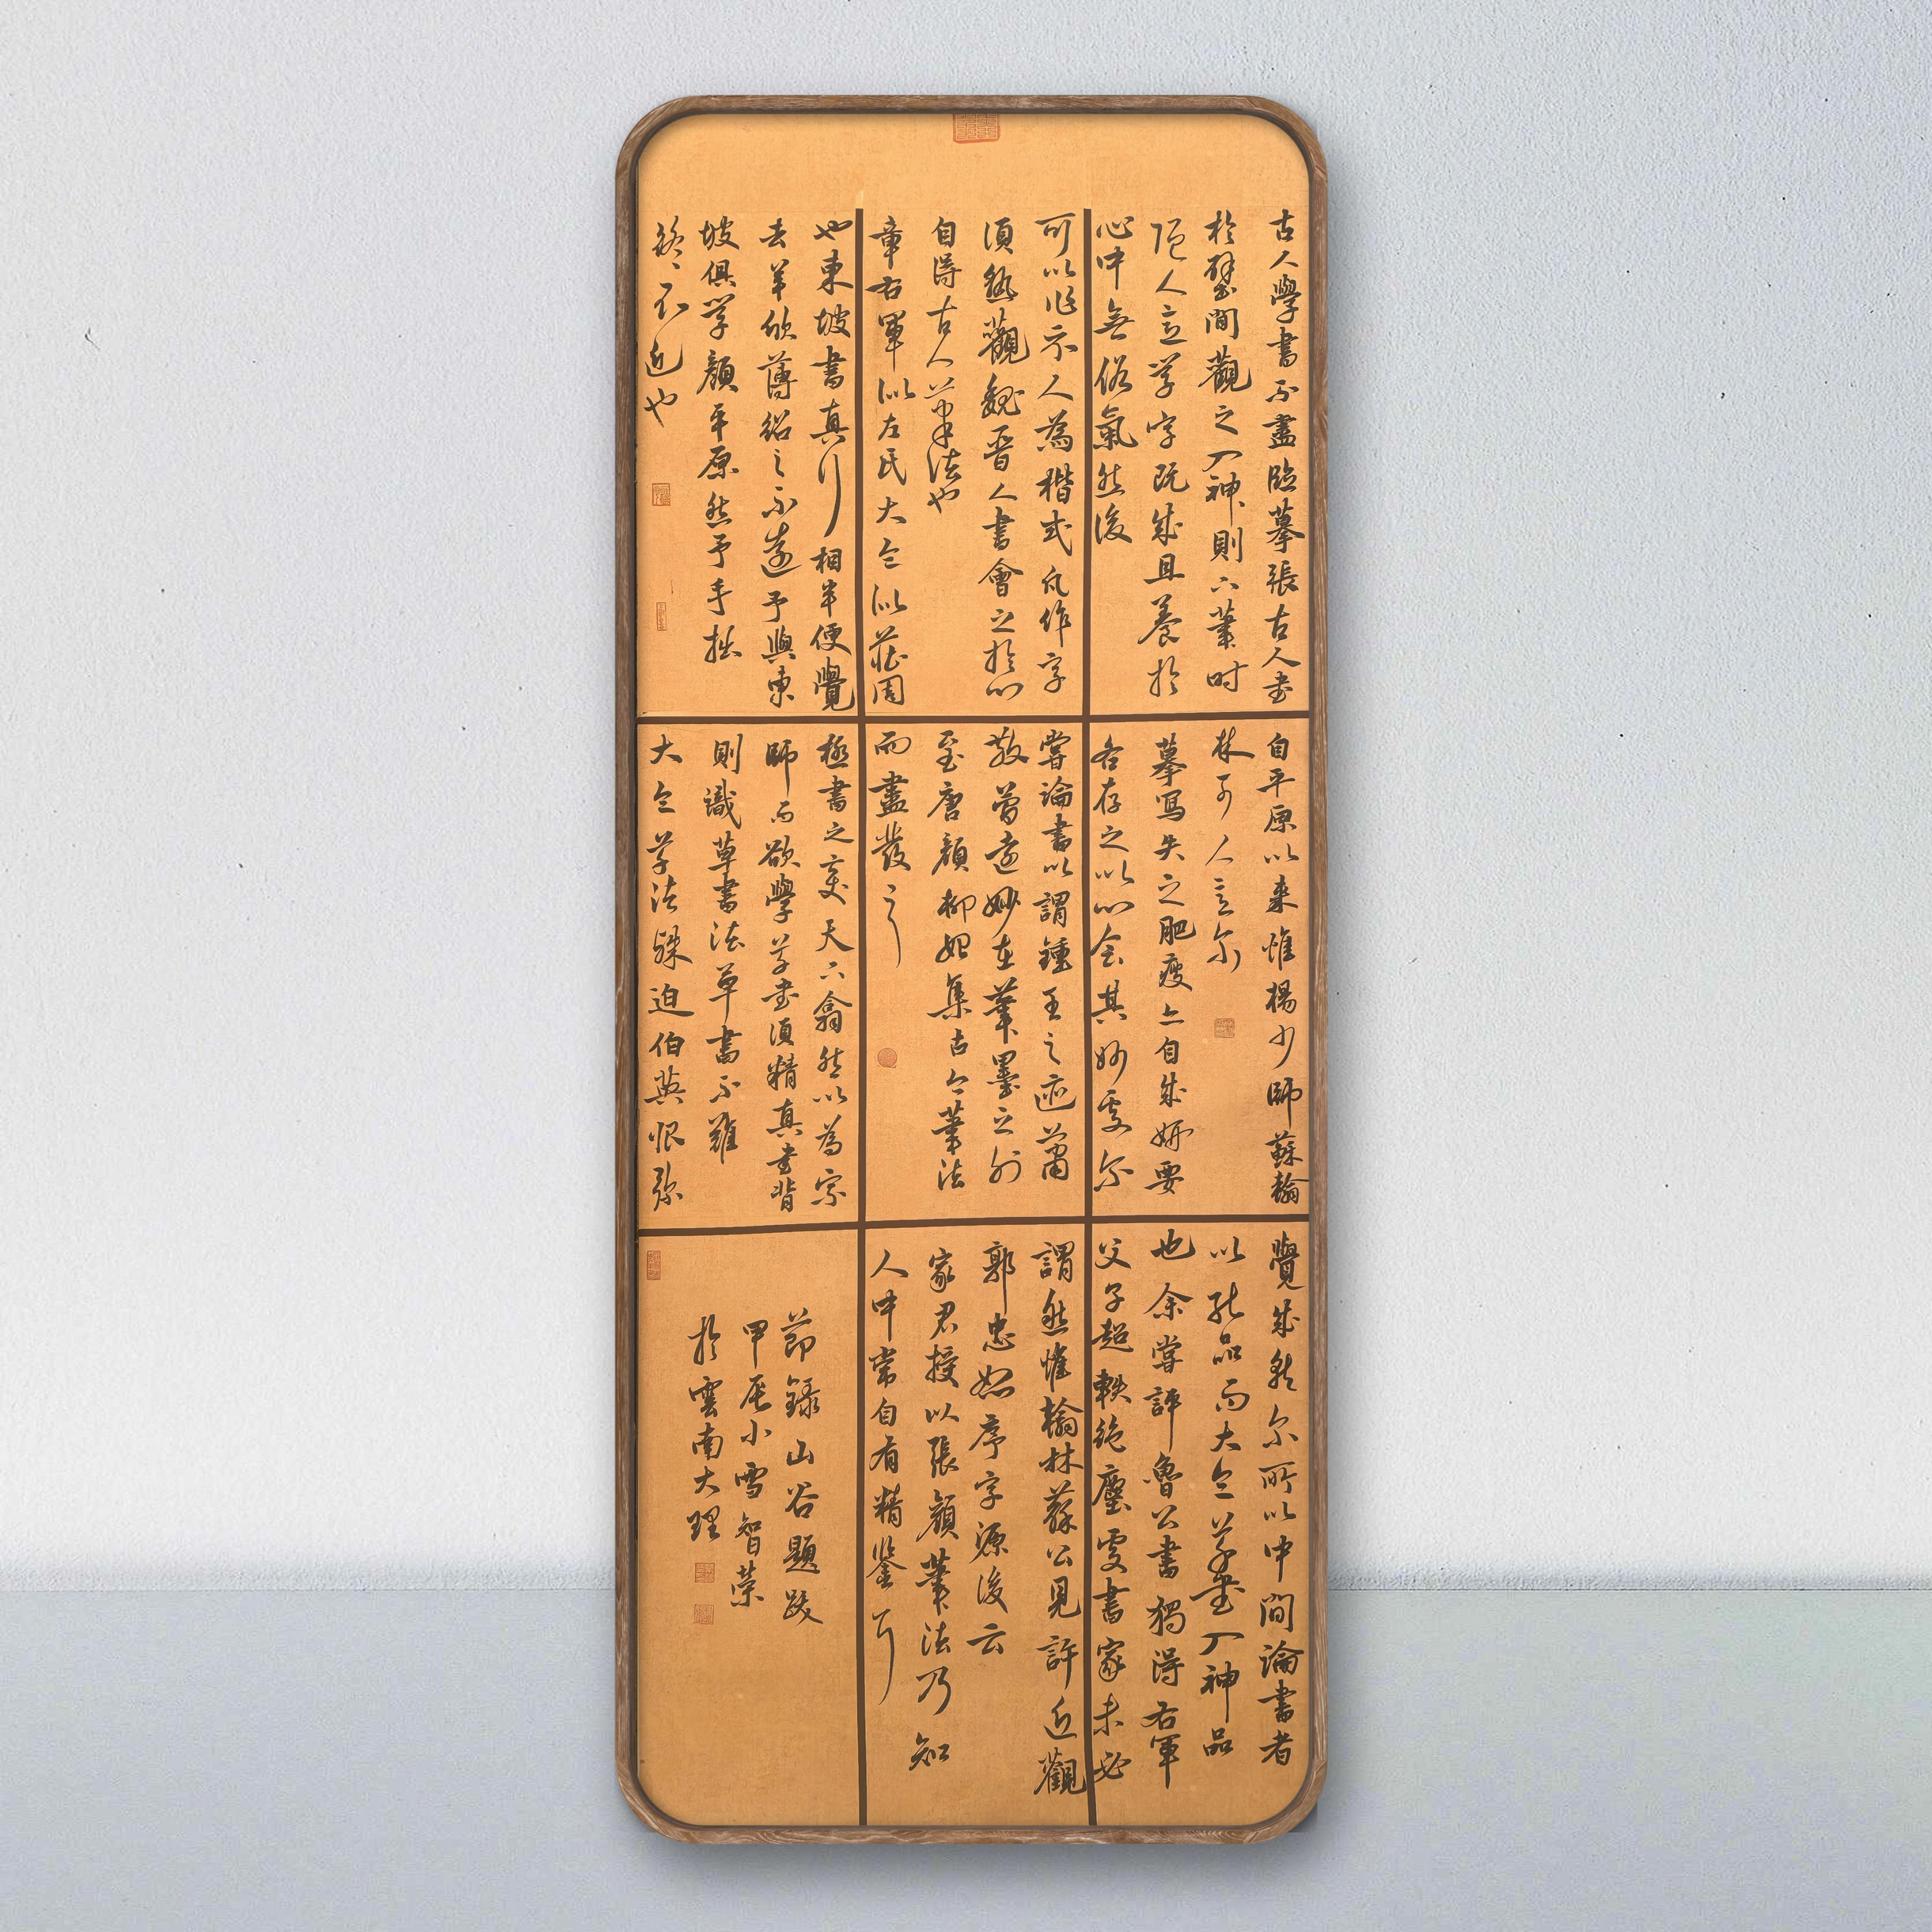 古人學書不盡臨摹張古人書
於壁間觀之入神則下筆時
隨人意学字既成且養於
心中無俗氣然後
可以作示人為楷式凡作字
須熟觀魏晉人書會之於心
自得古人筆法也
章右軍似左氏大令似莊周
也東坡書真行相半便覺
去羊欣薄紹之不遠予與東
坡俱学顏平原然予手拙
終不近也
自平原以来惟楊少師蘇翰
林可人意尔
摹寫失之肥瘦亦自成妍要
各存之以心会其妙處尔
嘗論書以謂鍾王之迹蕭
散簡遠妙在筆墨之外
至唐顏柳始集古今筆法
而盡發之
極書之變天下翕然以為宗
師而欲學草書須精真書
則識草書法草書不難
大令草法殊迫伯英恨弥
覺成就尔所以中間論書者
以能品而大令草書入神品
也余嘗評魯公書獨得右軍
父子超軼絶塵處書家未必
謂然惟翰林蘇公見許近觀
郭忠恕序字源後云
家君授以張顏筆法乃知
人中常自有精鑒耳
節錄山谷題跋
甲辰小雪智榮
於雲南大理